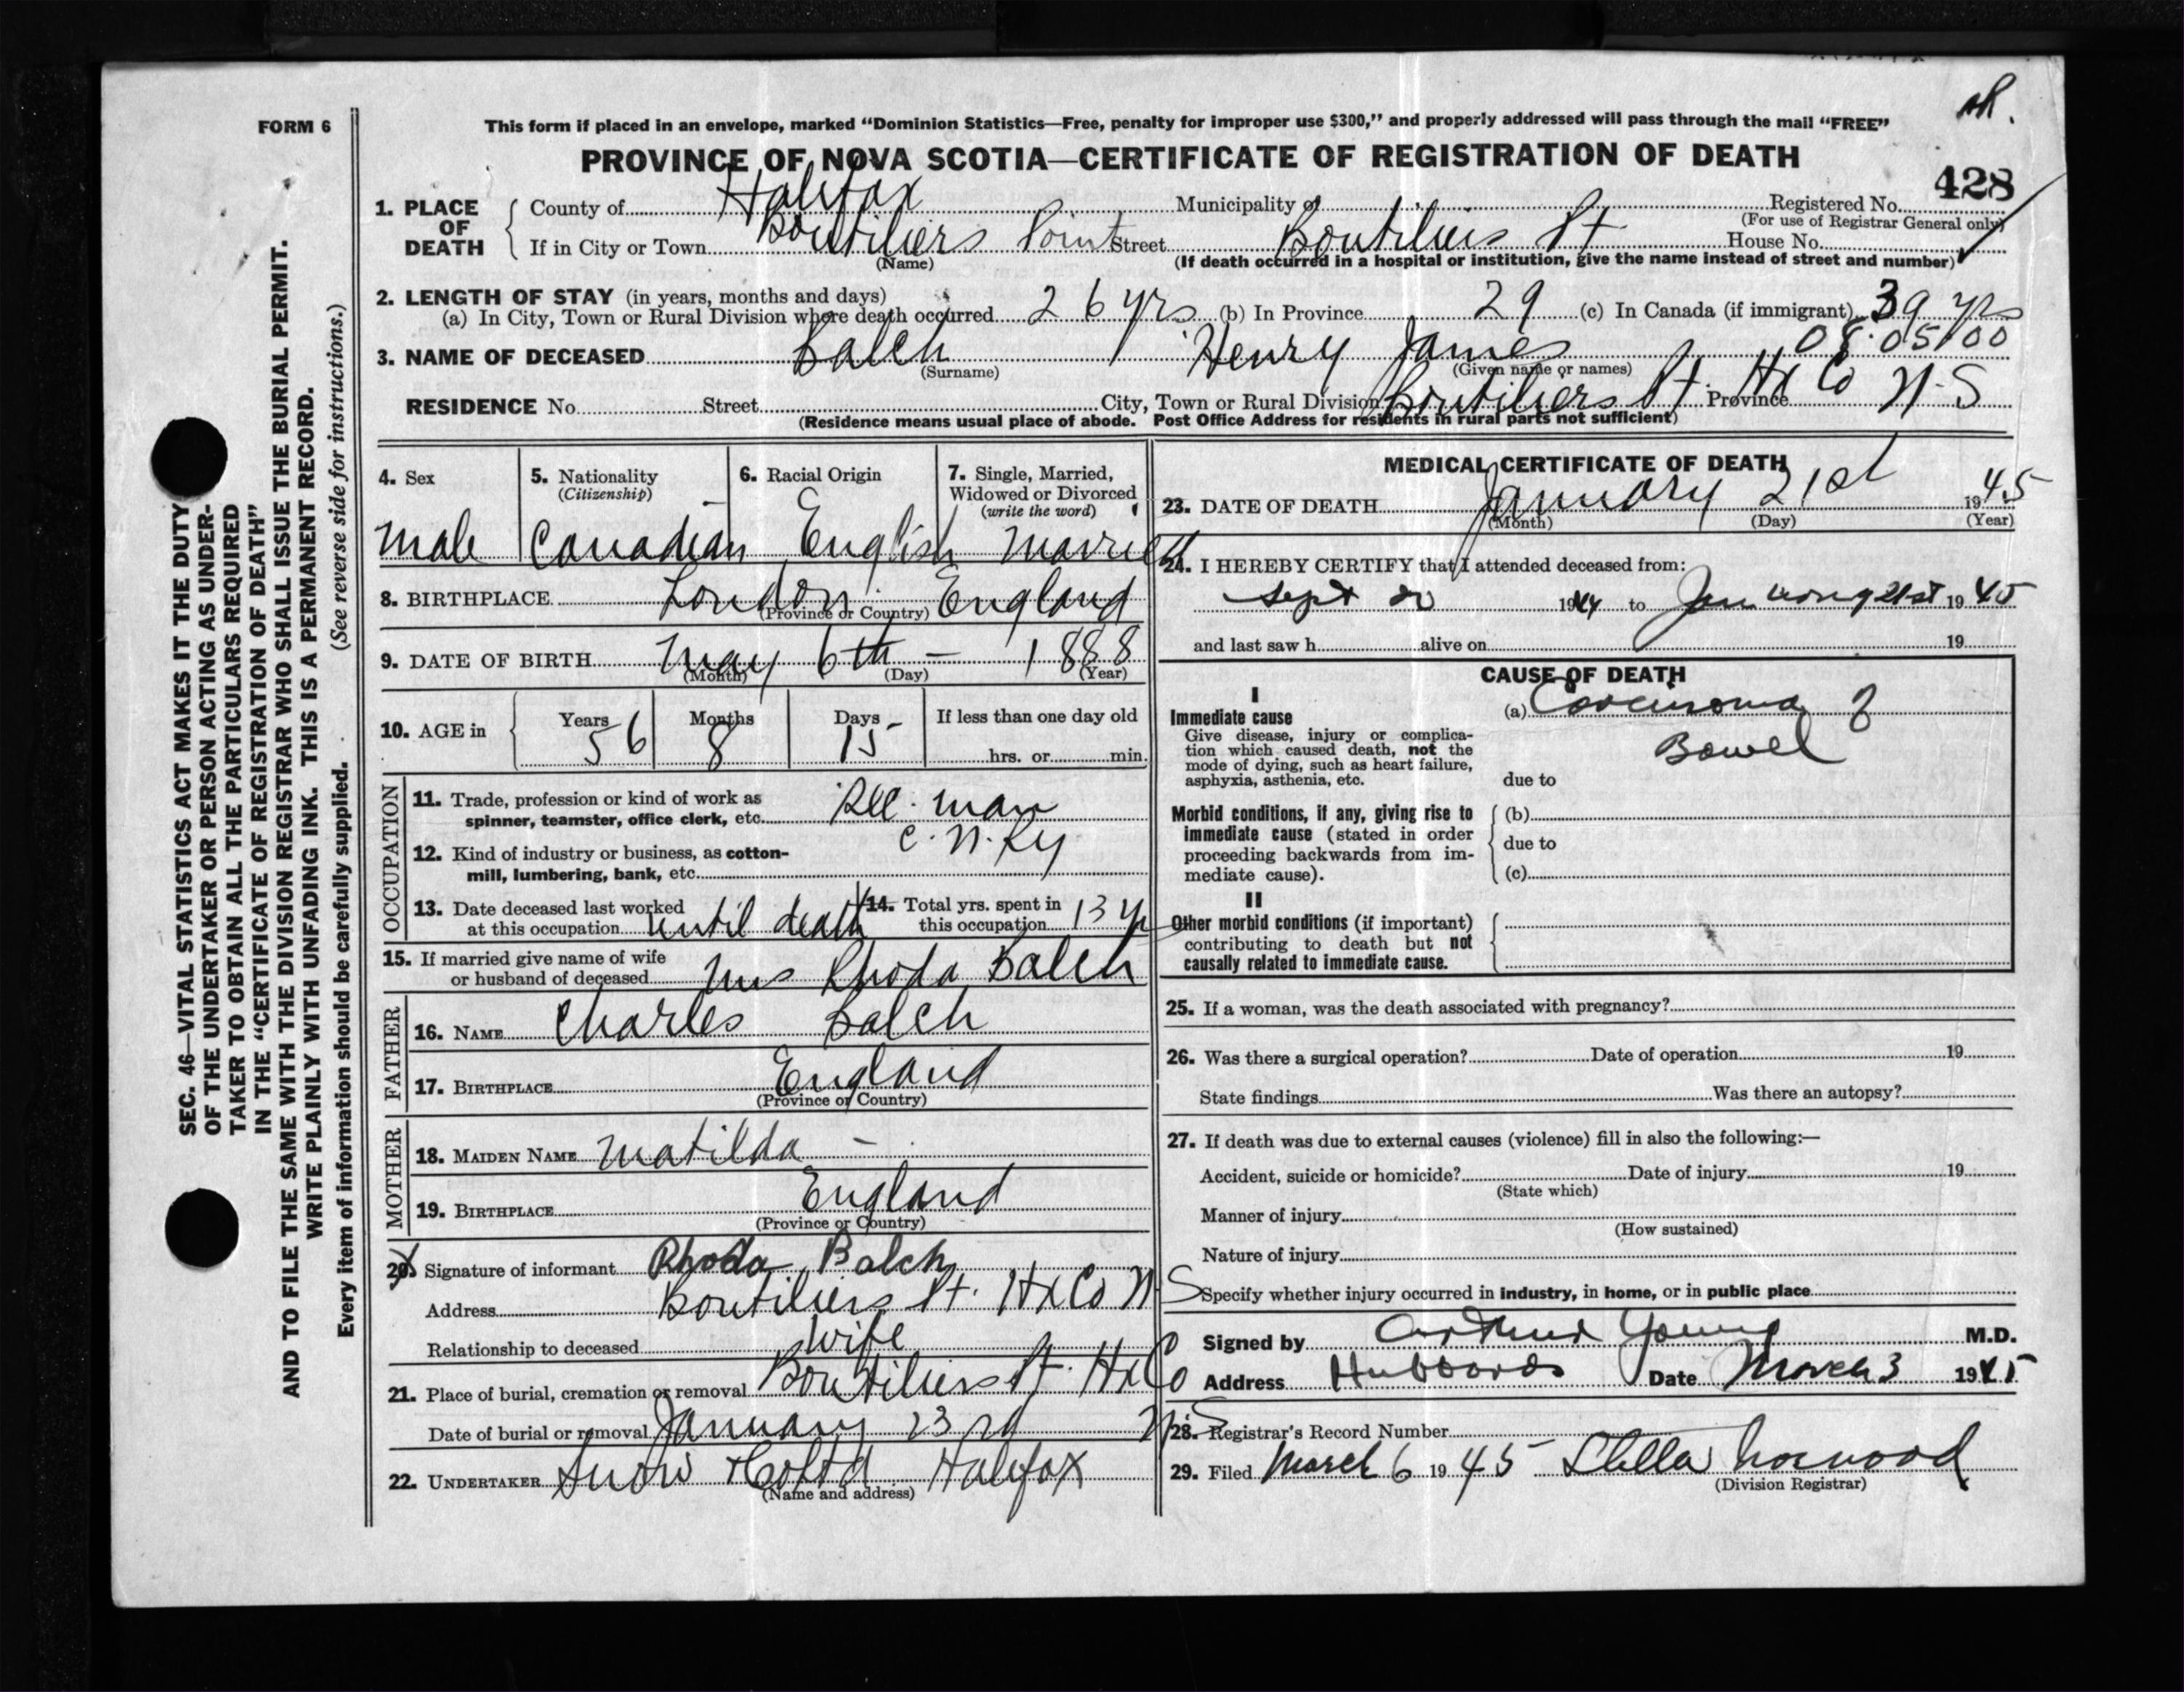 sR.
FORM 6
This form if placed in an envelope, marked “Dominion Statistics—Free, penalty for improper use $300,” and properly addressed will pass through the mail “FREE”
PROVINCE OF NOVA SCOTIA—CERTIFICATE OF REGISTRATION OF DEATH
428
1. PLACE OF DEATH County of Halifax Municipality of Registered No.
(For use of Registrar General only)
If in City or Town Boutiliers Point Street Boutiliers Pt House No.
(Name) (If death occurred in a hospital or institution, give the name instead of street and number)
2. LENGTH OF STAY (in years, months and days)
(a) In City, Town or Rural Division where death occurred 26 yrs (b) In Province 29 (c) In Canada (if immigrant) 39 yrs
08.05100
3. NAME OF DECEASED Balch Henry James
(Surname) (Given name or names)
RESIDENCE No. Street City, Town or Rural Division Boutiliers Pt. Hx Co Province N-S
(Residence means usual place of abode. Post Office Address for residents in rural parts not sufficient)
4. Sex 5. Nationality (Citizenship) 6. Racial Origin 7. Single, Married, Widowed or Divorced (write the word)
male Canadian English Married
8. BIRTHPLACE London England
(Province or Country)
9. DATE OF BIRTH May 6th - 1888
(Month) (Day) (Year)
10. AGE in Years Months Days If less than one day old
56 8 15 hrs. or min.
OCCUPATION
11. Trade, profession or kind of work as
spinner, teamster, office clerk, etc. Sec. man
12. Kind of industry or business, as cotton-
mill, lumbering, bank, etc. C. N. Ry
13. Date deceased last worked
at this occupation until death
14. Total yrs. spent in
this occupation 13 yr
15. If married give name of wife
or husband of deceased Mrs Rhoda Balch
FATHER
16. NAME Charles Balch
17. BIRTHPLACE England
(Province or Country)
MOTHER
18. MAIDEN NAME Matilda -
19. BIRTHPLACE England
(Province or Country)
20. Signature of informant Rhoda Balch
Address Boutiliers Pt. Hx Co N S
Relationship to deceased Wife
21. Place of burial, cremation or removal Boutiliers Pt. Hx Co
Date of burial or removal January 23rd N.S
22. UNDERTAKER Snow & Co Ltd Halifax
(Name and address)
MEDICAL CERTIFICATE OF DEATH
23. DATE OF DEATH January 21st 1945
(Month) (Day) (Year)
24. I HEREBY CERTIFY that I attended deceased from:
Sept 20 1944 to January 21st 1945
and last saw h alive on 19
CAUSE OF DEATH
I
Immediate cause
Give disease, injury or complica-
tion which caused death, not the
mode of dying, such as heart failure,
asphyxia, asthenia, etc.
(a) Carcinoma of
Bowel
due to
Morbid conditions, if any, giving rise to
immediate cause (stated in order
proceeding backwards from im-
mediate cause).
(b)
due to
(c)
II
Other morbid conditions (if important)
contributing to death but not
causally related to immediate cause.
25. If a woman, was the death associated with pregnancy?
26. Was there a surgical operation? Date of operation 19
State findings Was there an autopsy?
27. If death was due to external causes (violence) fill in also the following:—
Accident, suicide or homicide? Date of injury 19
(State which)
Manner of injury
(How sustained)
Nature of injury
Specify whether injury occurred in industry, in home, or in public place
Signed by Arthur Young M.D.
Address Hubbards Date March 3 1945
28. Registrar's Record Number
29. Filed March 6 1945 Stella Norwood
(Division Registrar)
SEC. 46—VITAL STATISTICS ACT MAKES IT THE DUTY
OF THE UNDERTAKER OR PERSON ACTING AS UNDER-
TAKER TO OBTAIN ALL THE PARTICULARS REQUIRED
IN THE “CERTIFICATE OF REGISTRATION OF DEATH”
AND TO FILE THE SAME WITH THE DIVISION REGISTRAR WHO SHALL ISSUE THE BURIAL PERMIT.
WRITE PLAINLY WITH UNFADING INK. THIS IS A PERMANENT RECORD.
Every item of information should be carefully supplied. (See reverse side for instructions.)